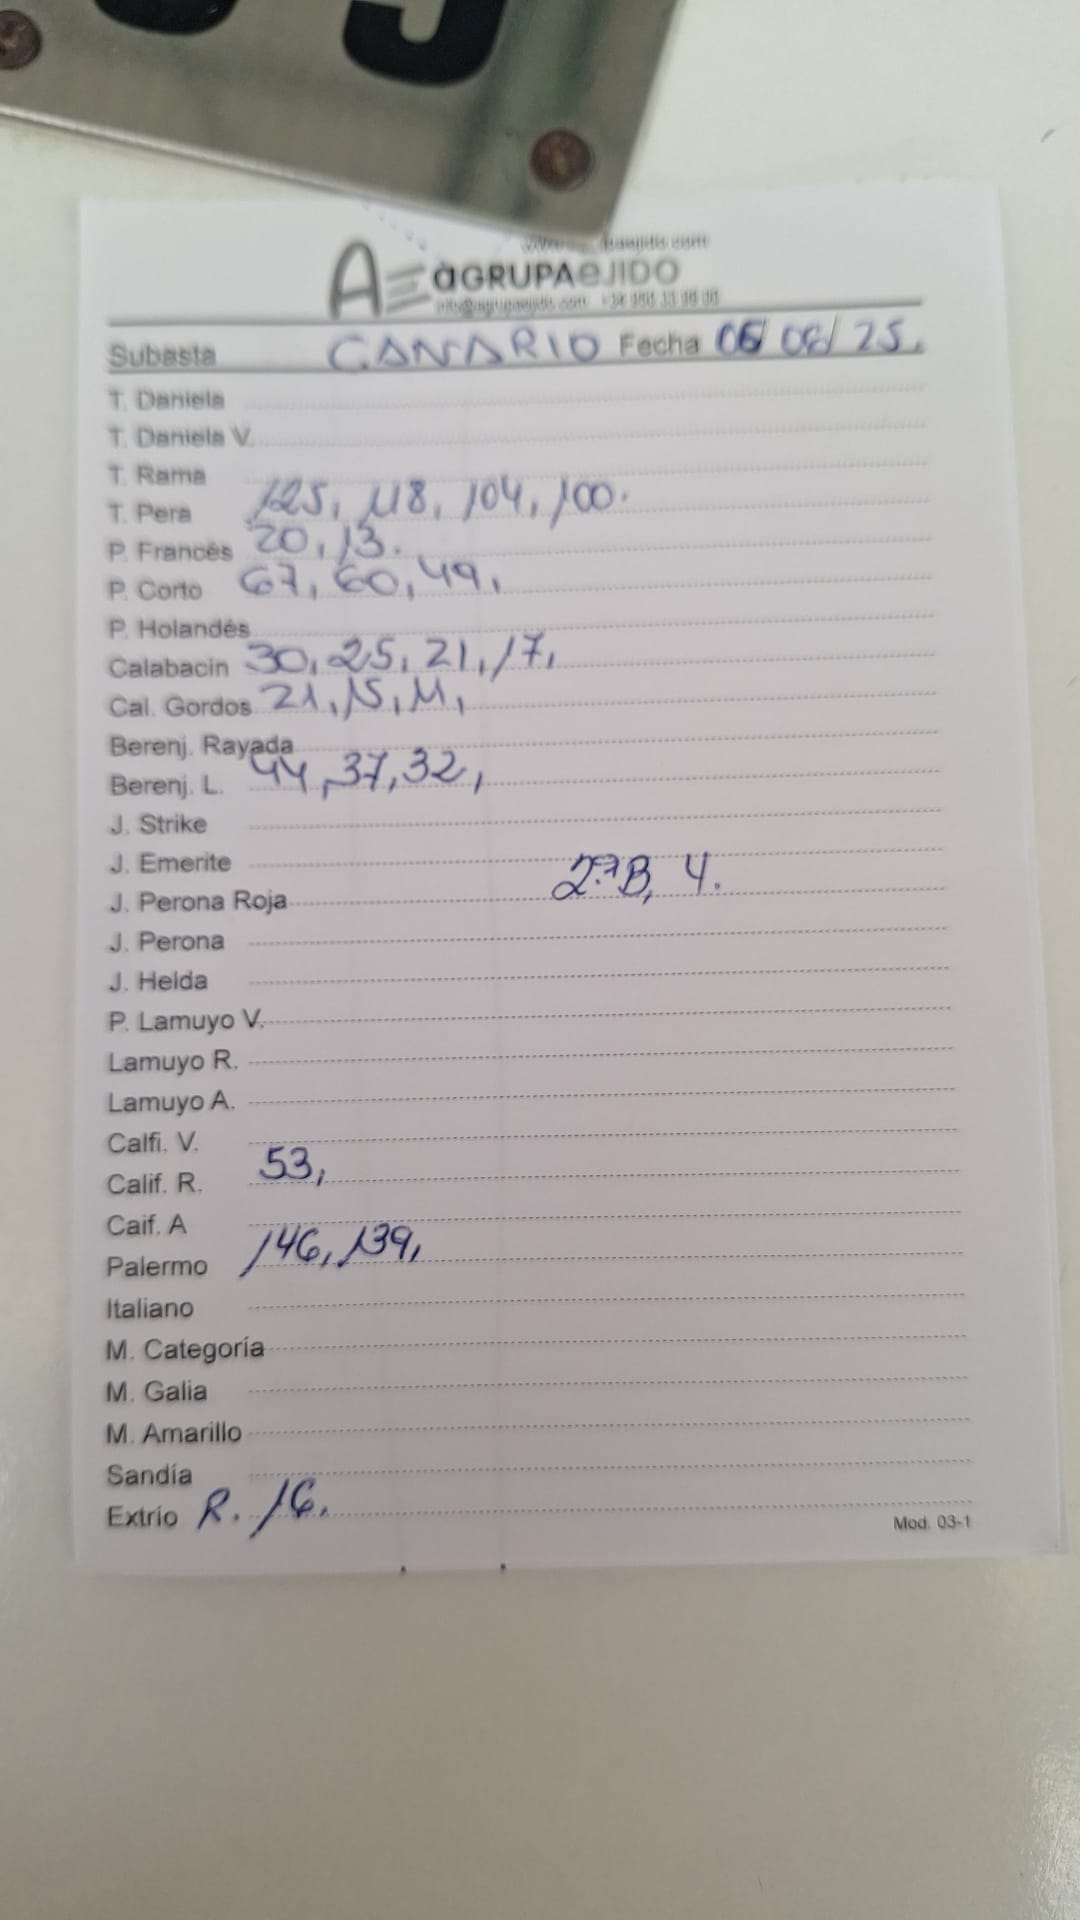 AE aGRUPAeJIDO
Subasta CANARIO Fecha 06/06/25.
T. Daniela
T. Daniela V.
T. Rama
T. Pera 125, 118, 104, 100.
P. Francés 20, 13.
P. Corto 67, 60, 49,
P. Holandés
Calabacin 30, 25, 21, 17,
Cal. Gordos 21, 15, 11,
Berenj. Rayada
Berenj. L. 44, 37, 32,
J. Strike
J. Emerite
J. Perona Roja 2.ªB, 4.
J. Perona
J. Helda
P. Lamuyo V.
Lamuyo R.
Lamuyo A.
Calfi. V.
Calif. R. 53,
Caif. A
Palermo 146, 139,
Italiano
M. Categoría
M. Galia
M. Amarillo
Sandía
Extrío R. 16.
Mod. 03-1